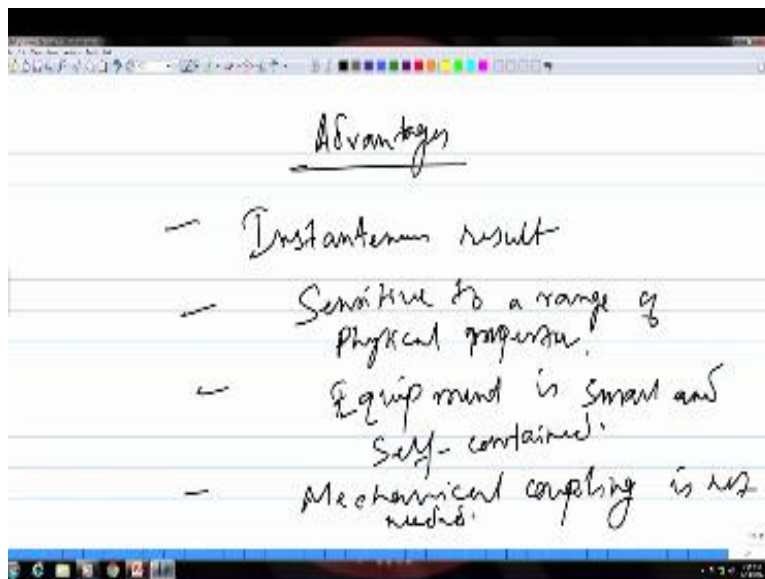 Advantages
- Instantaneous result
- Sensitive to a range of
physical properties.
- Equipment is small and
Self-contained.
- Mechanical coupling is not
needed.